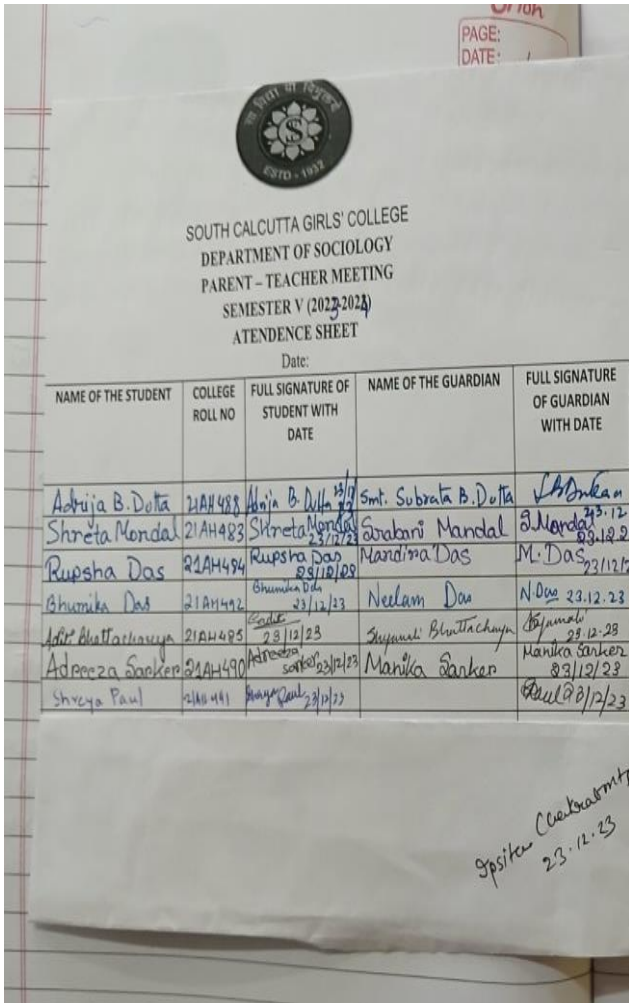 Orion
PAGE:
DATE:
सा विद्या या विमुक्तये
S
ESTD - 1932
SOUTH CALCUTTA GIRLS' COLLEGE
DEPARTMENT OF SOCIOLOGY
PARENT – TEACHER MEETING
SEMESTER V (2023-2024)
ATENDENCE SHEET
Date:
NAME OF THE STUDENT COLLEGE ROLL NO FULL SIGNATURE OF STUDENT WITH DATE NAME OF THE GUARDIAN FULL SIGNATURE OF GUARDIAN WITH DATE
Adrija B. Dutta 21AH488 Adrija B. Dutta 23/12 Smt. Subrata B. Dutta 23.12
Shreta Mondal 21AH483 Shreta Mondal 23/12/23 Srabani Mandal S. Mondal 23.12.2
Rupsha Das 21AH494 Rupsha Das 23/12/23 Mandira Das M. Das 23/12/2
Bhumika Das 21AH492 Bhumika Das 23/12/23 Neelam Das N. Das 23.12.23
Aditi Bhattacharya 21AH485 23/12/23 Shyamali Bhattacharya Shyamali 23.12.23
Adreeza Sarker 21AH490 Adreeza Sarker 23/12/23 Manika Sarker Manika Sarker 23/12/23
Shreya Paul 491 Shreya Paul 23/12/23 Paul 23/12/23
Ipsita Chakraborty
23.12.23